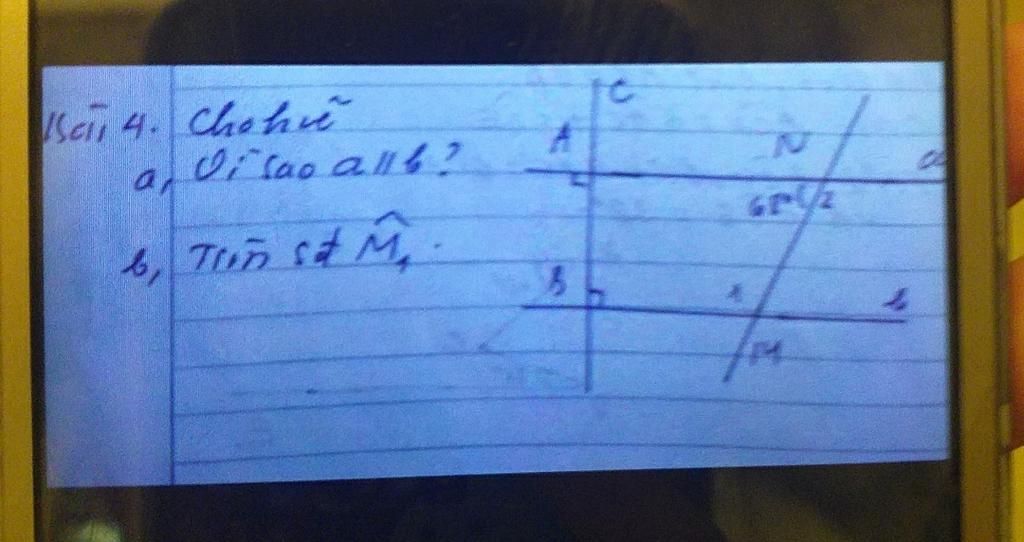 Bài 4. Cho hvẽ
a, Vì sao a // b?
b, Tính sđ M̂₁.
c
A
N
a
2
B
1
b
M